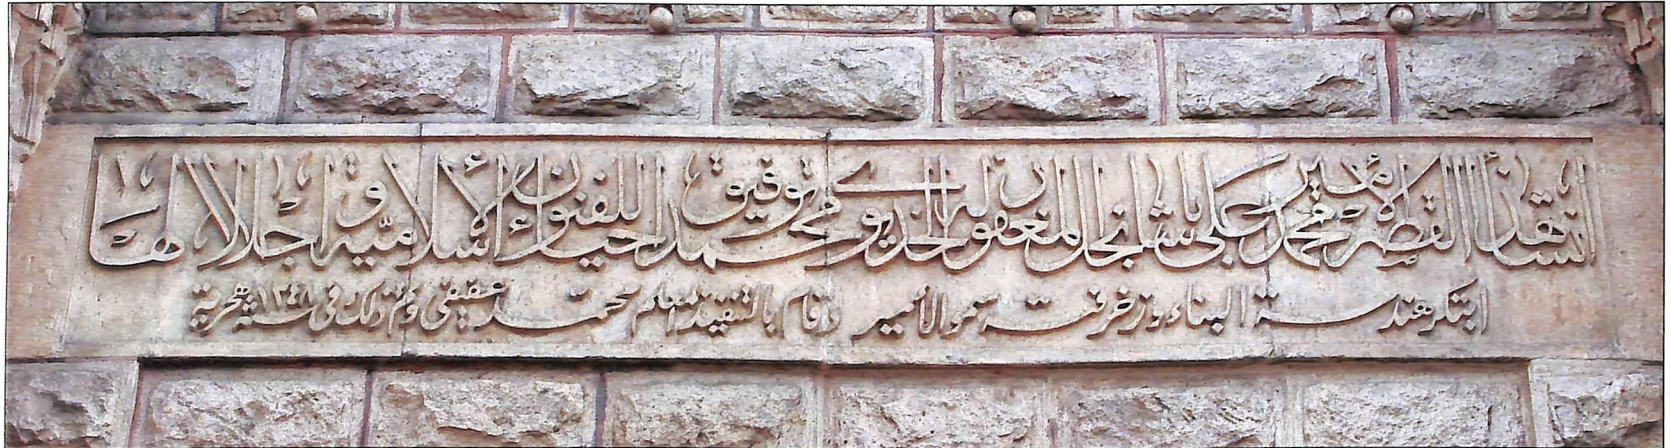 أنشأ هذا القصر الأمير محمد على باشا نجل المغفور له الخديوى محمد توفيق إحياء للفنون الإسلامية وإجلالا لها
ابتكر هندسة البناء وزخرفته سمو الأمير وقام بالتنفيذ المعلم محمد عفيفى وتم ذلك فى سنة ١٢٤٨ هجرية